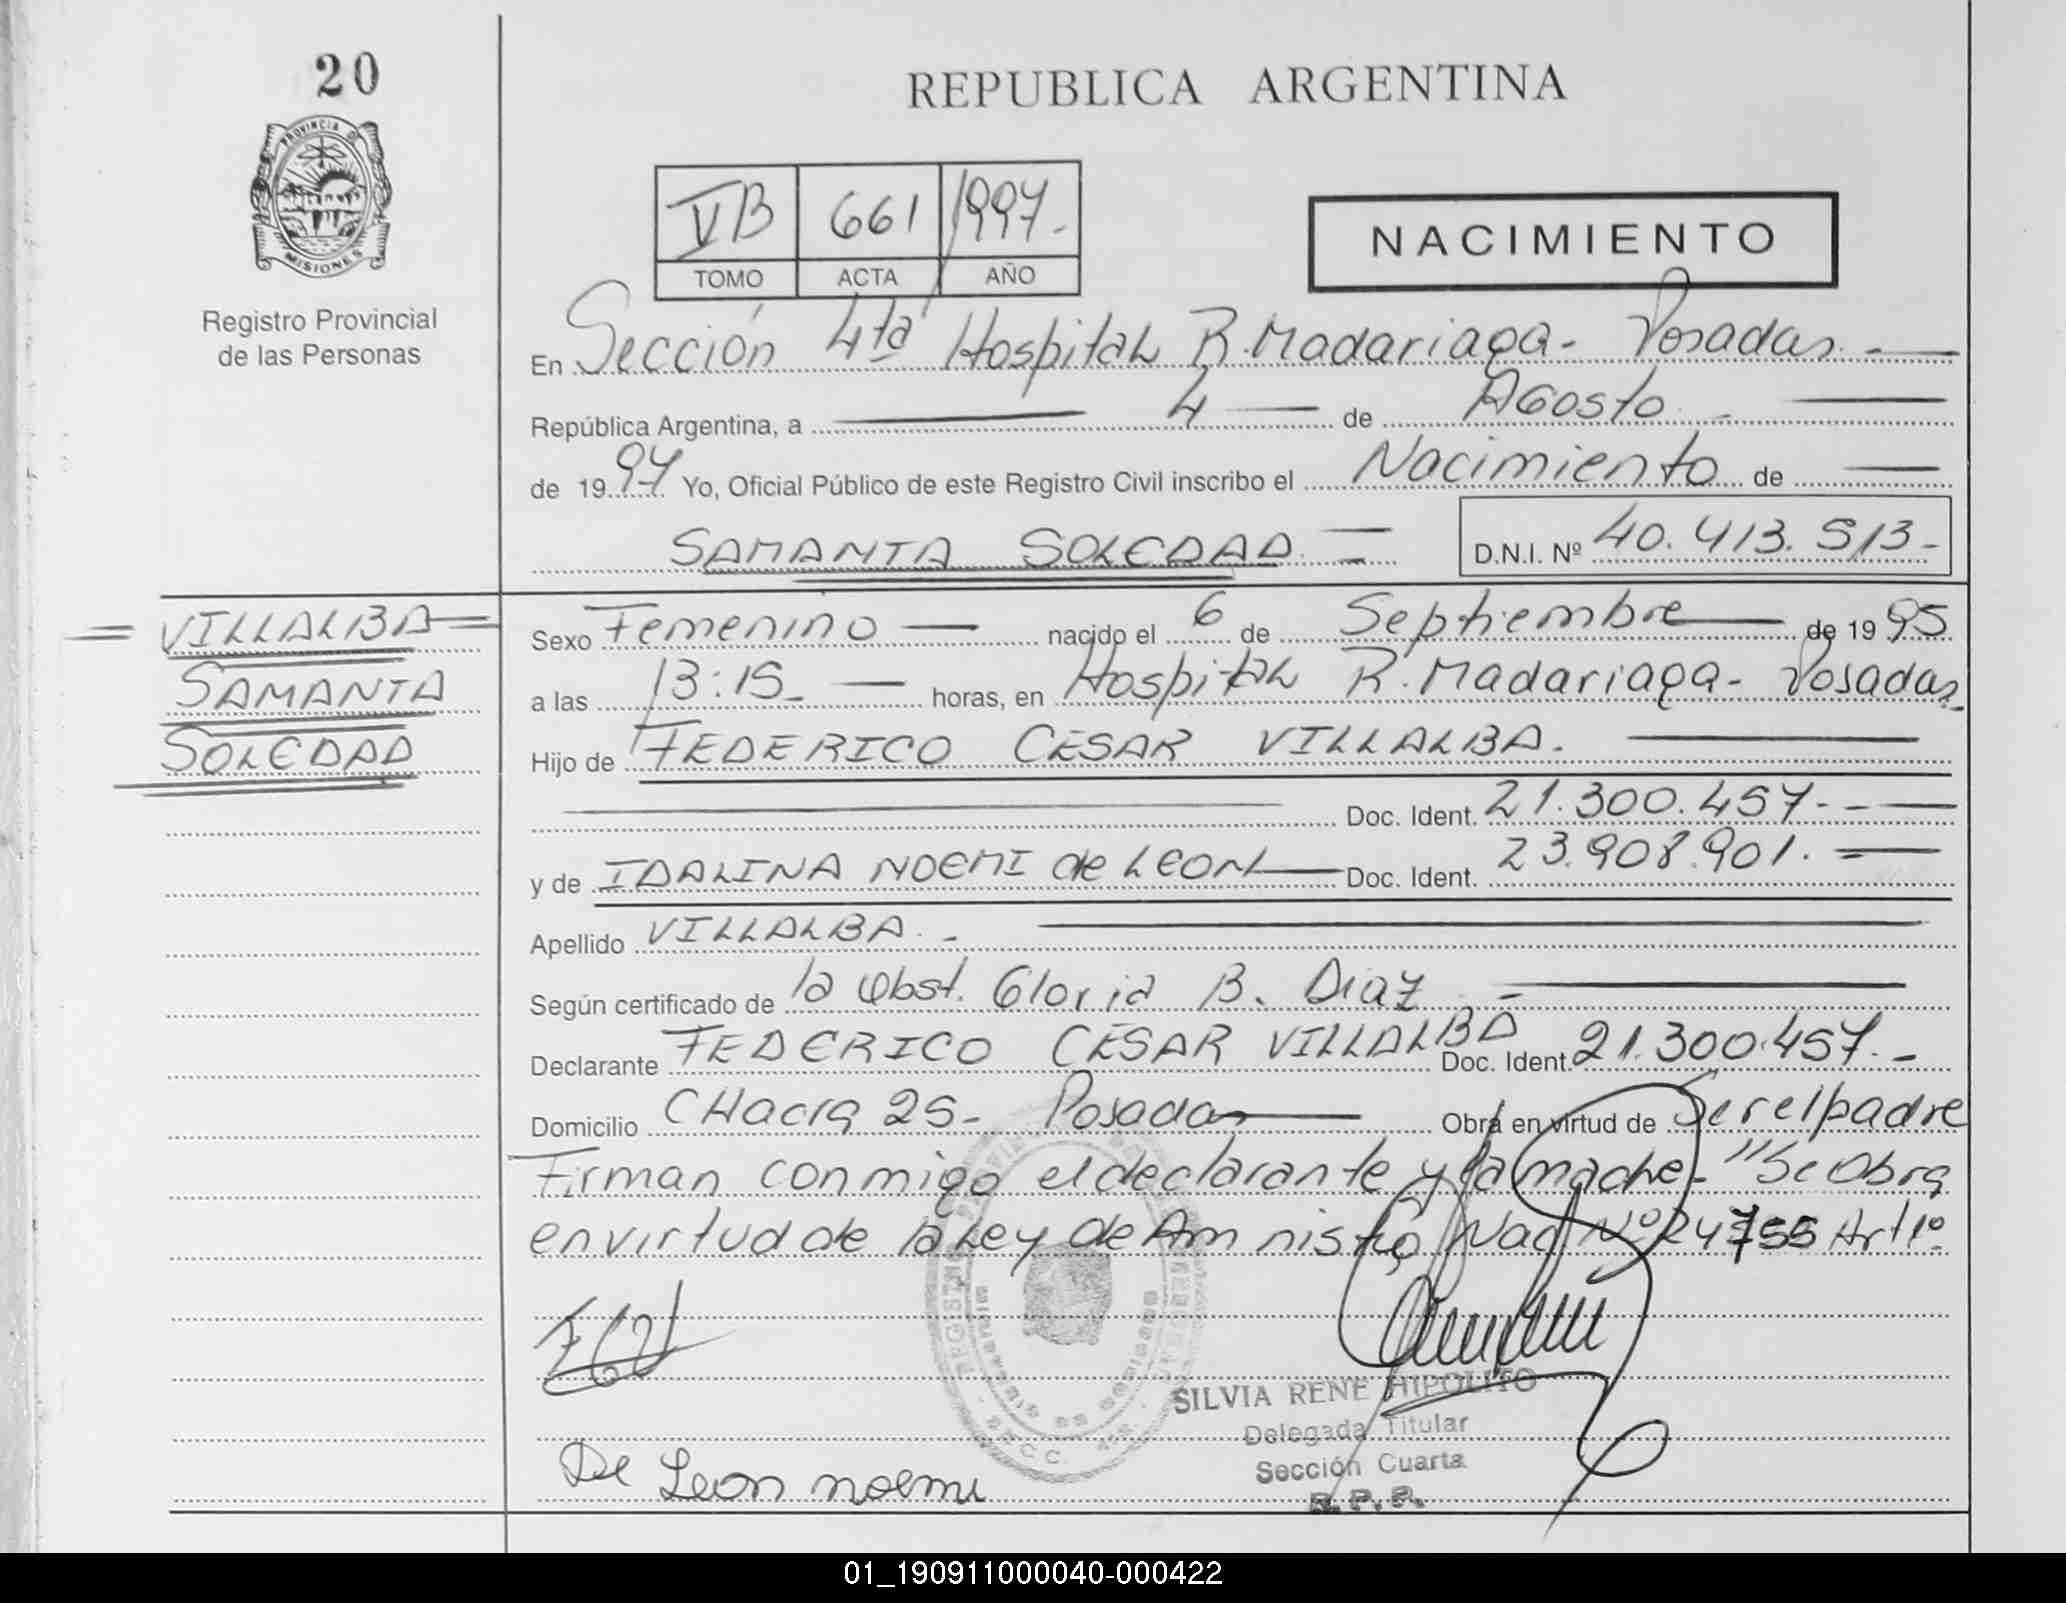 20
PROVINCIA DE
MISIONES
Registro Provincial
de las Personas
REPUBLICA ARGENTINA
VB 661 1997.-
TOMO ACTA AÑO
NACIMIENTO
En Sección 4ta Hospital R. Madariaga - Posadas. -
República Argentina, a 4 de Agosto. -
de 1997 Yo, Oficial Público de este Registro Civil inscribo el Nacimiento de
SAMANTA SOLEDAD. D.N.I. Nº 40.413.513-
VILLALBA
SAMANTA
SOLEDAD
Sexo Femenino nacido el 6 de Septiembre de 1995
a las 13:15. horas, en Hospital R. Madariaga - Posadas.
Hijo de FEDERICO CESAR VILLALBA.
Doc. Ident. 21.300.457.-
y de IDALINA NOEMI de LEON Doc. Ident. 23.908.901. -
Apellido VILLALBA. -
Según certificado de la Obst. Gloria B. Diaz. -
Declarante FEDERICO CESAR VILLALBA Doc. Ident. 21.300.457. -
Domicilio CHacra 25- Posadas Obra en virtud de Ser el padre
Firman conmigo el declarante y la madre - "Se Obra
en virtud de la Ley de Amnistia Nac Nº 24755 Art 1º
De Leon noemi
SILVIA RENE HIPOLITO
Delegada Titular
Sección Cuarta
R.P.P.
01_190911000040-000422